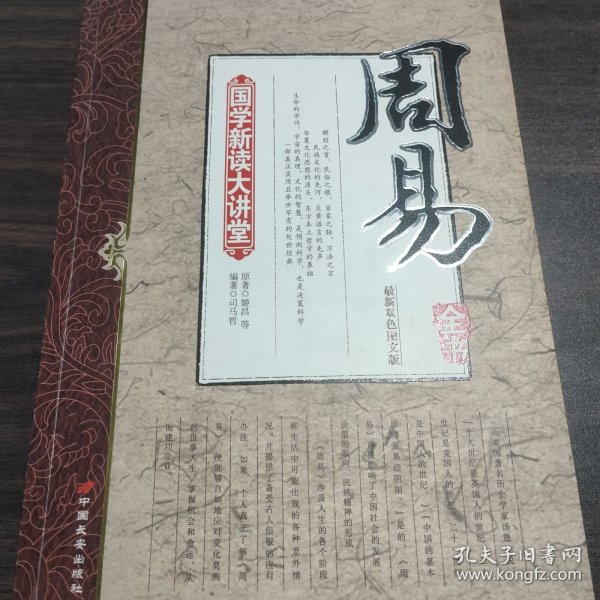 周易
全书
最新双色图文版
群经之首，民俗之根，百家之脉，万法之宗
民族文化的先河，炎黄语言的先声
华夏文化思想的源头，东方本土哲学的鼻祖
生命的学问，宇宙的真理，文化的智慧，是预测科学，也是决策科学
一部真正实用且举世罕有的处世经典
国学新读大讲堂
原著◎姬昌 等
编著◎司马哲
英国著名历史学家汤恩
二十九世纪是英国人的世纪
世纪是美国人的世
是中国人的世纪
中国的基本
易经阴阳
是的，《周
易》影响了中国社会的发展、
价值的取向、民族精神的形成
《周易》涉及人生的各个阶段
和生活中可能出现的各种意外情
况，并提供了备受古人信服的应对
办法。如果一个人真正了解《周
易》，便能够自如地应对变化莫测
的世事人生，掌握机会和命运，从
而建功立业。
中国长安出版社
孔夫子旧书网
www.kongfz.com